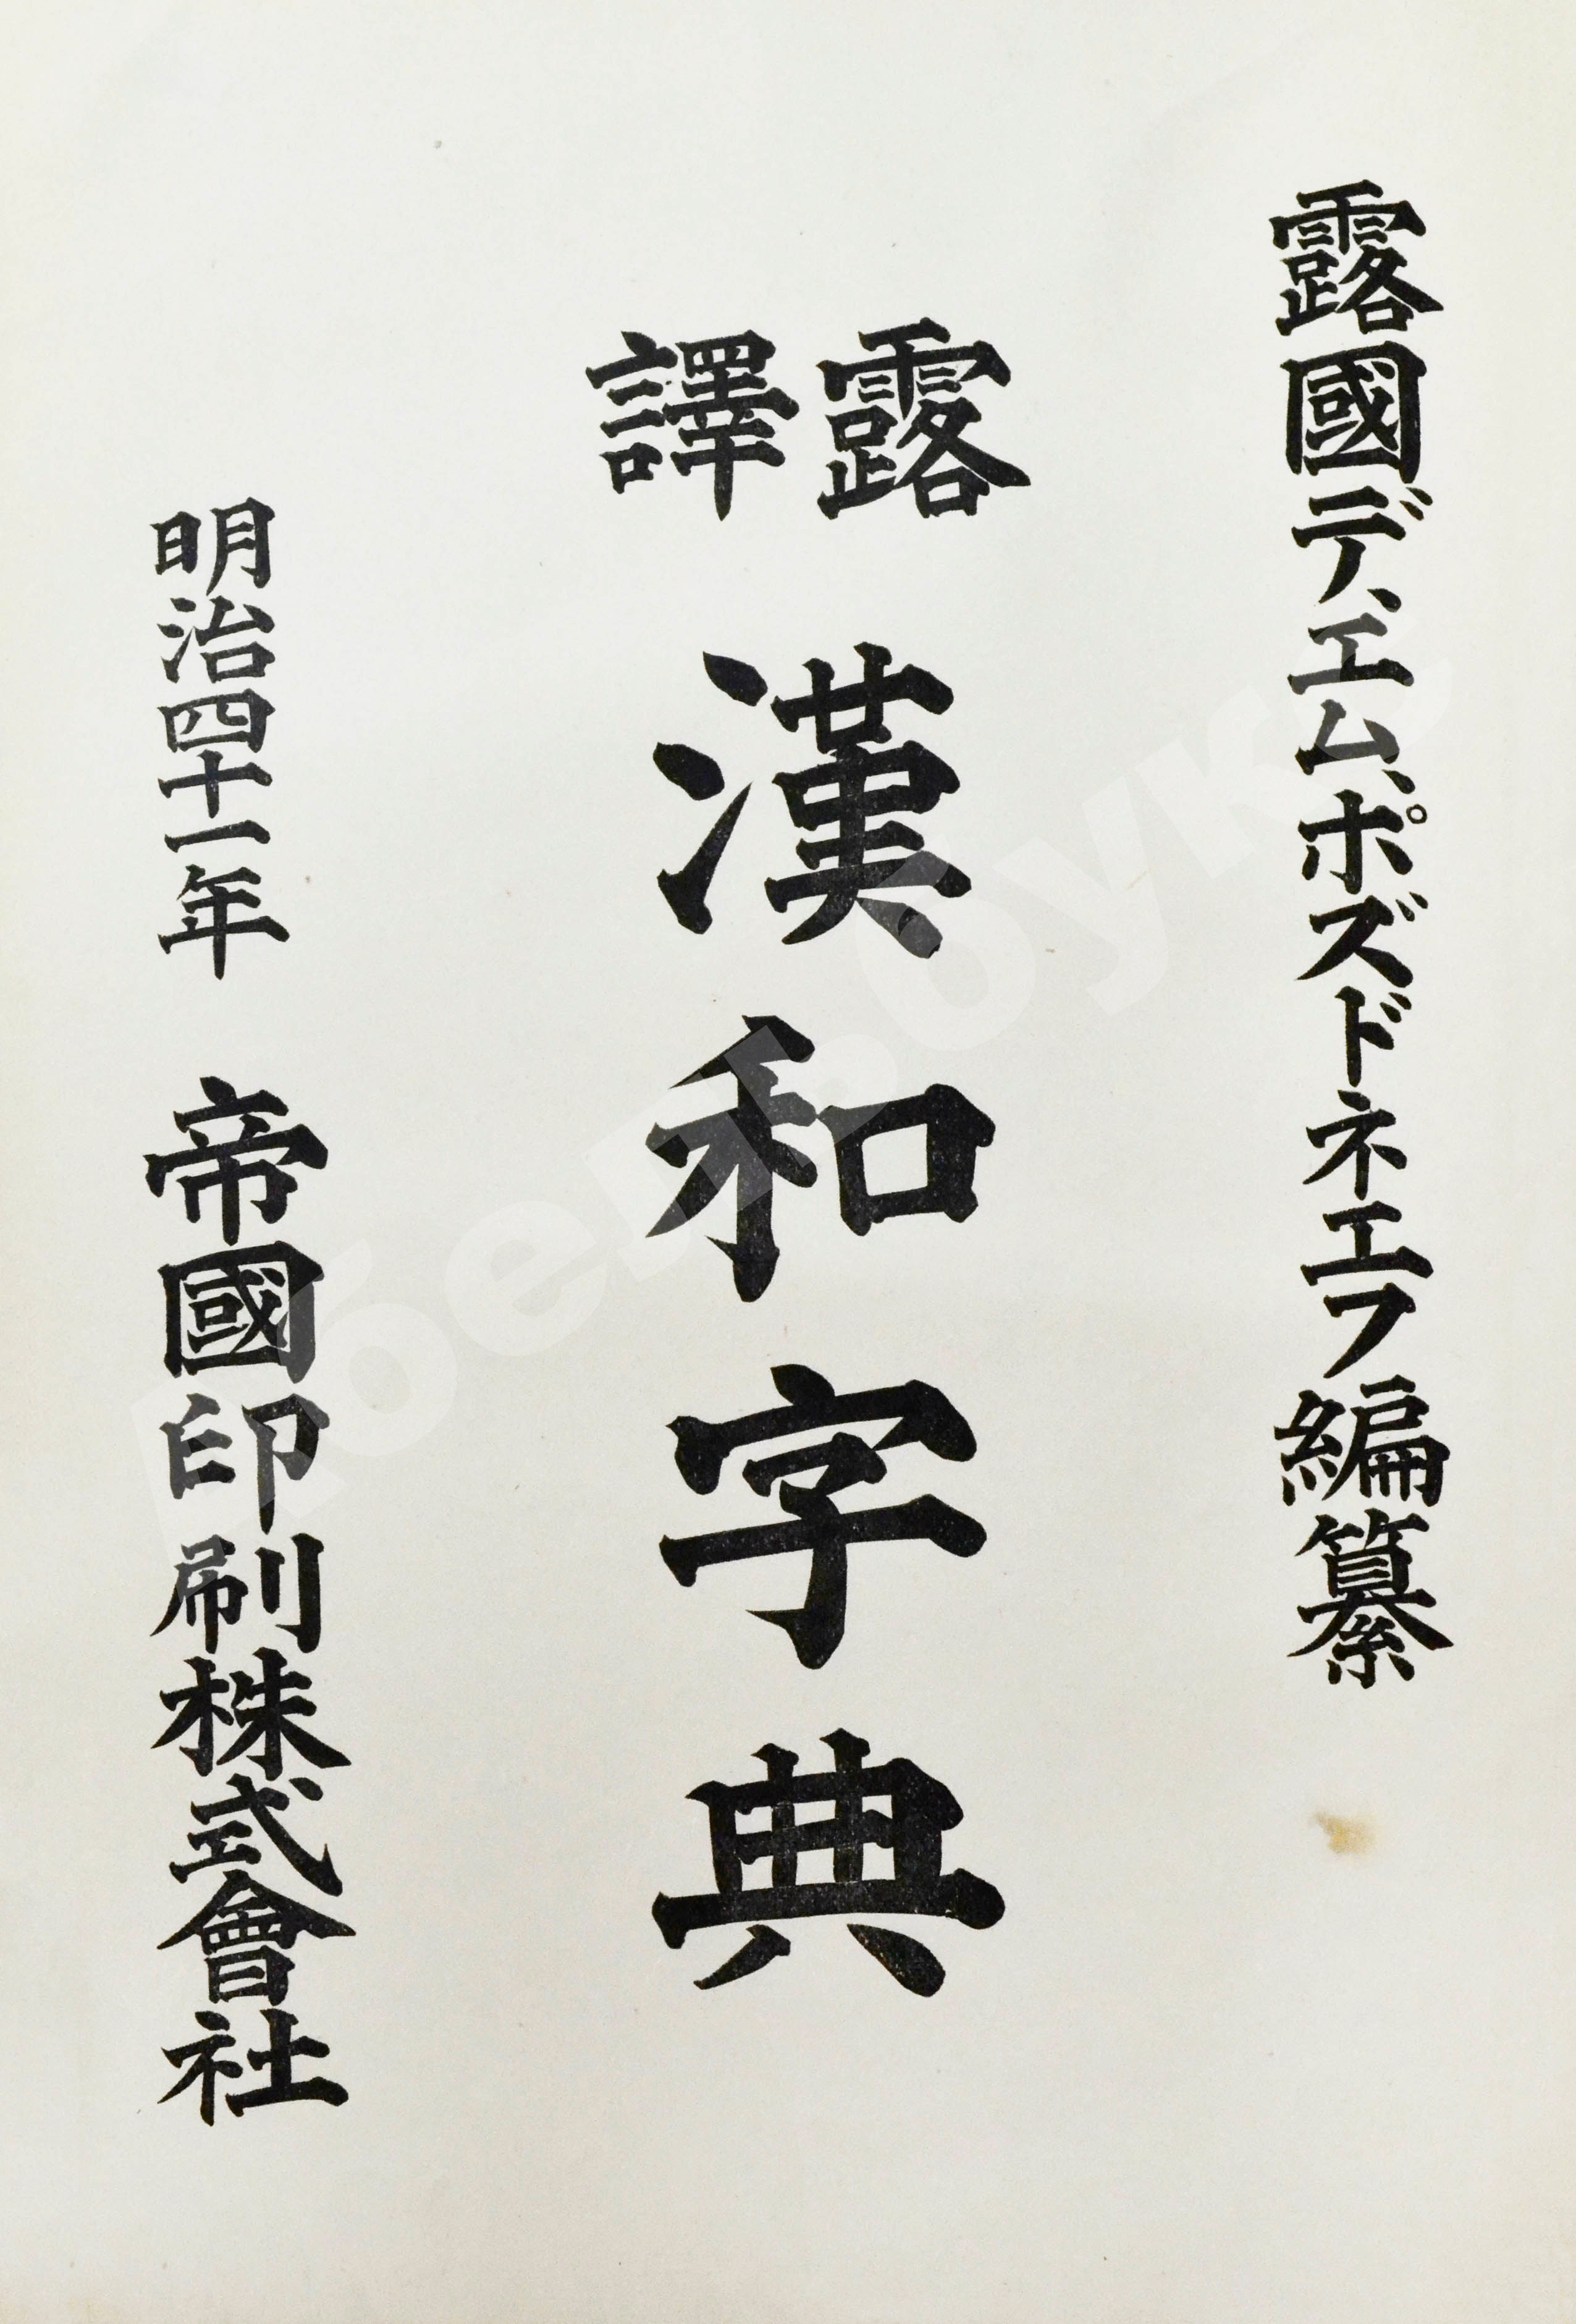 露國デ、エム、ポズドネエフ編纂
露譯
漢和字典
明治四十一年 帝國印刷株式會社